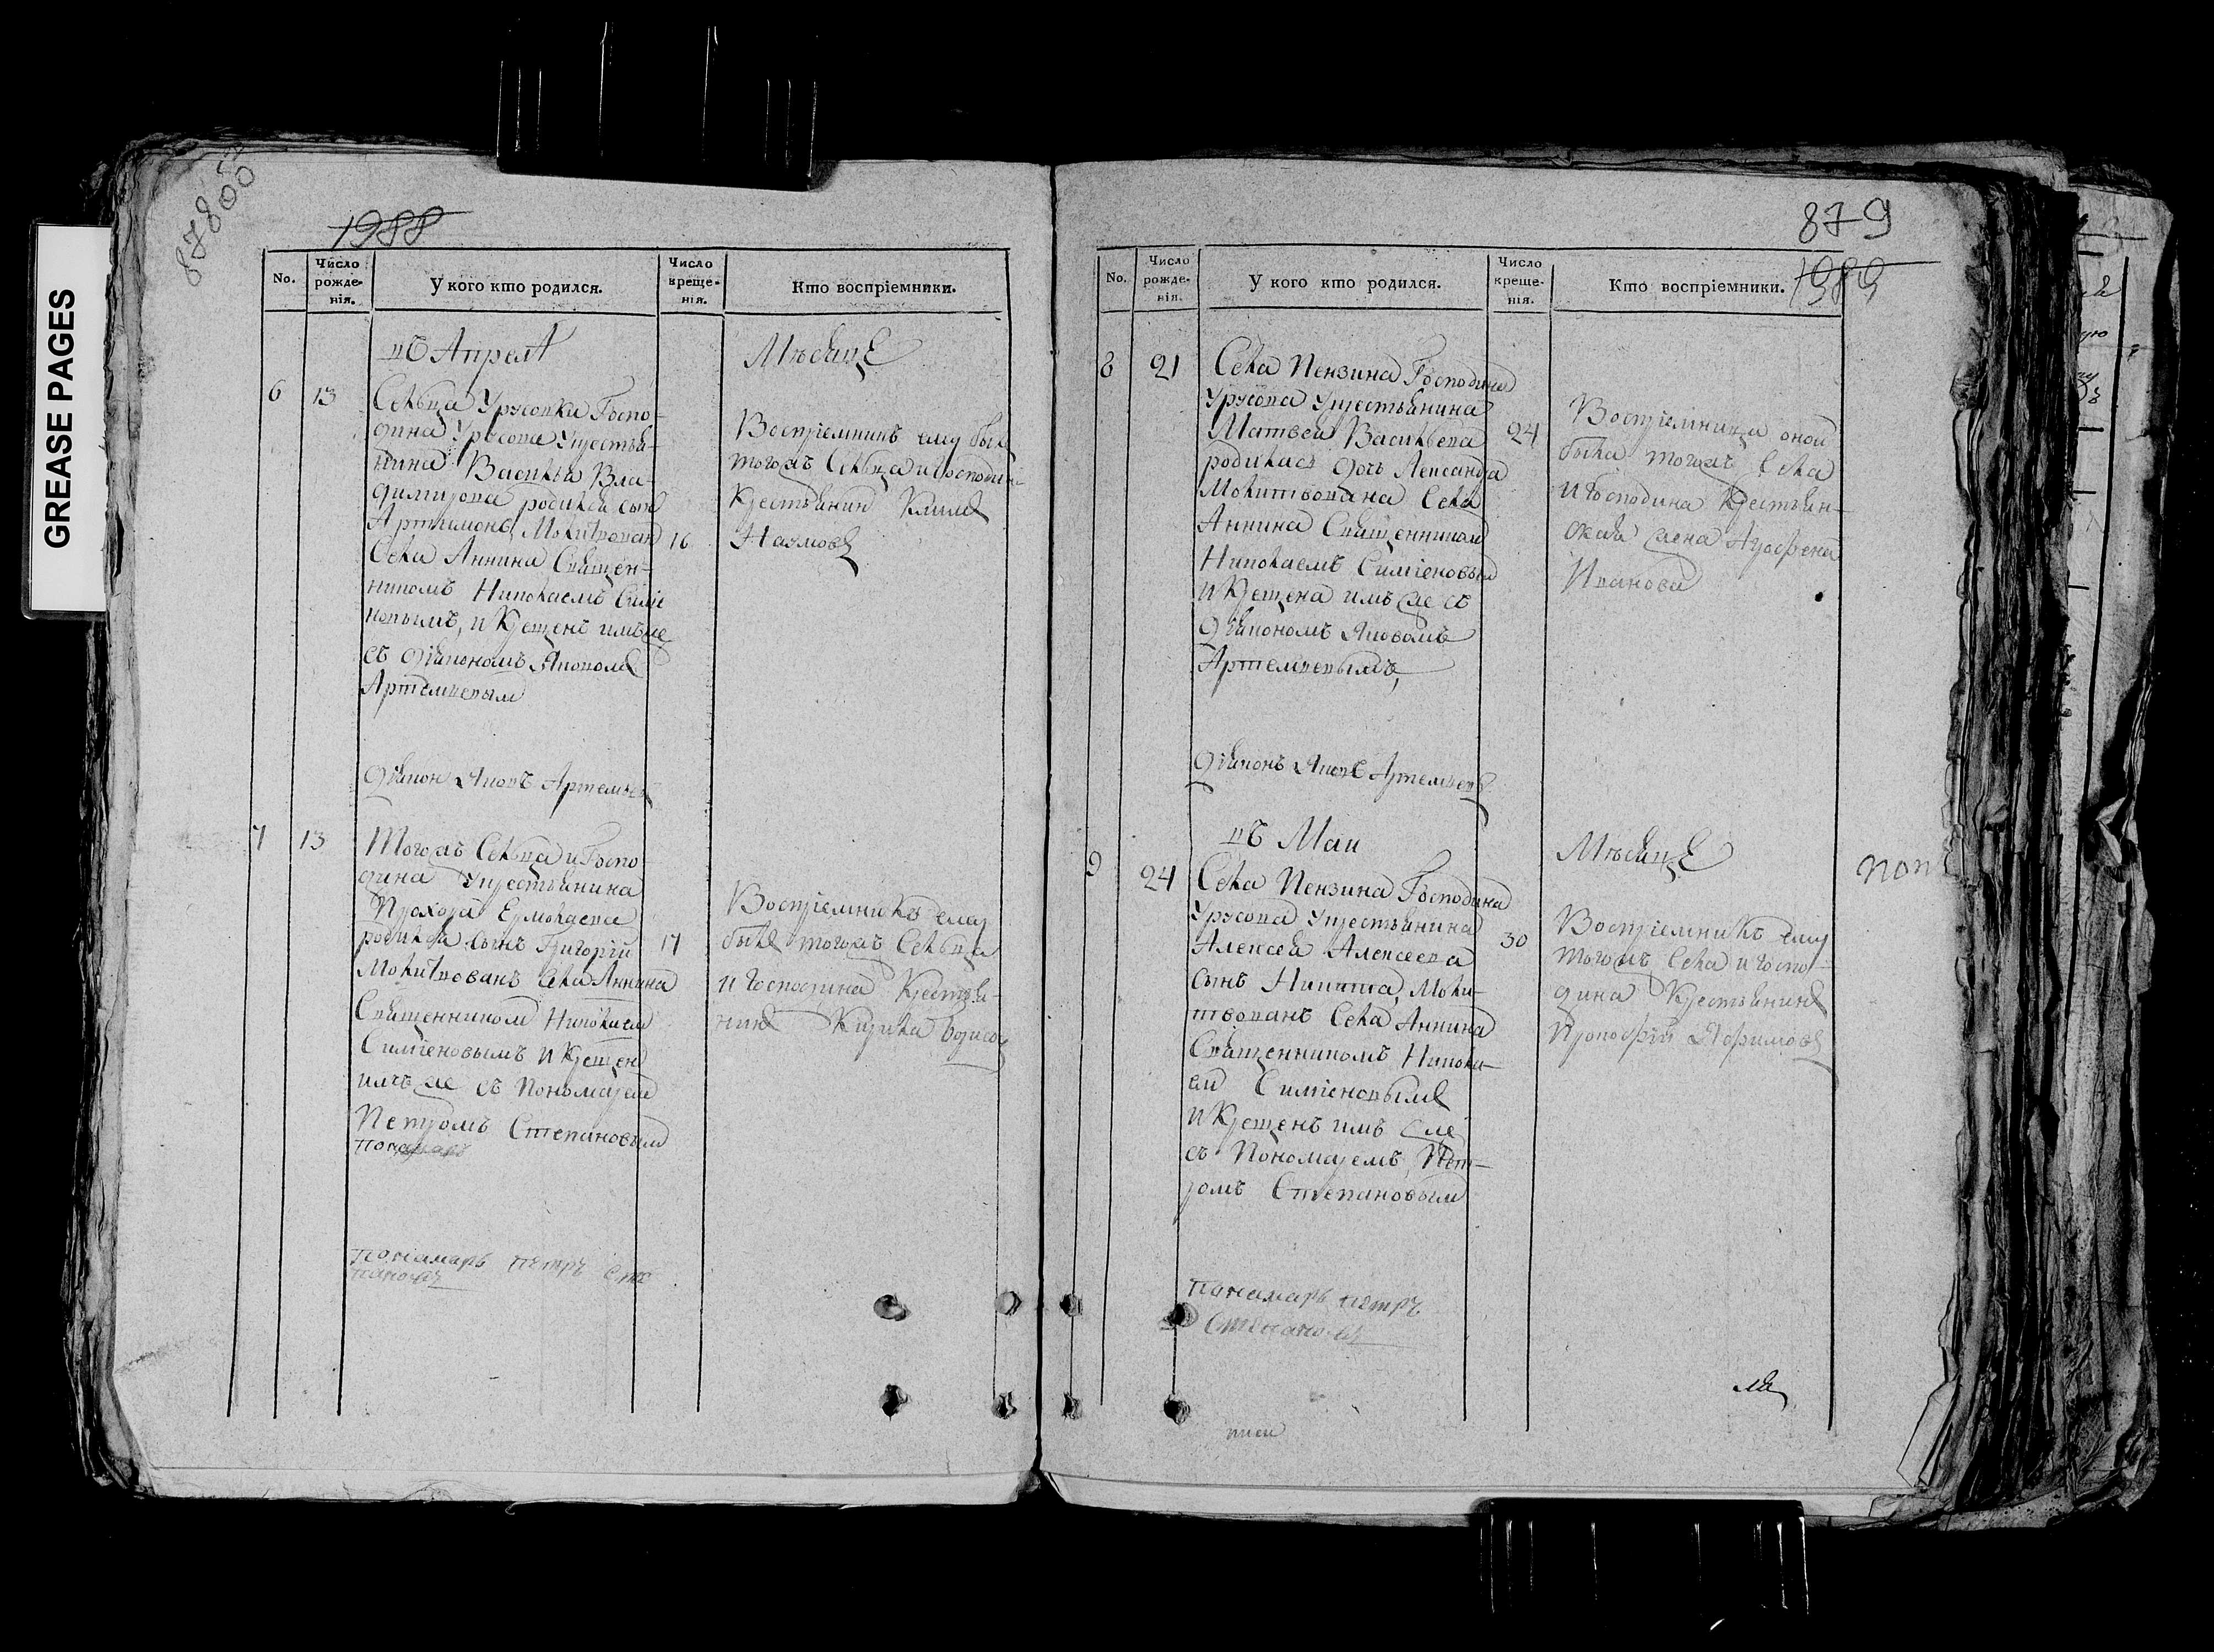 GREASE PAGES
1988
No.
Число рожде-нія.
У кого кто родился.
Число креще-нія.
Кто воспріемники.
въ Апреля
Мѣсяцѣ
6
13
Сельца Урусовки Госпо-
дина Урусова укрестья-
нина Василья Вла-
димирова родился сынъ
Артамонъ, Молитвован
Села Аннина Священ-
никомъ Николаемъ Симіе
новымъ, и Крещенъ имъ же
съ діакономъ Яковомъ
Артемьевым
16
Воспріемникъ ему былъ
тогожъ Сельца и Господин
Крестьянин Климъ
Наумовъ
діакон Яковъ Артемьевъ
7
13
Тогожъ Сельца и Госпо
дина укрестьянина
Прохора Ермолаева
родился сынъ Григорій
Молитвованъ Села Аннина
Священником Николаем
Симіеновымъ и Крещен
имъ же съ Пономарем
Петромъ Степановым
17
Воспріемникъ ему
былъ тогожъ Сельца
и Господина Крестья-
нинъ Кирила Борисов
понамарь петръ сте
пановъ
879
1989
No.
Число рожде-нія.
У кого кто родился.
Число креще-нія.
Кто воспріемники.
8
21
Села Пензина Господина
Урусова укрестьянина
Матвея Васильева
родилась дочь Александра
Молитвована Села
Аннина Священником
Николаемъ Симіеновым
и Крещена имъ же съ
діакономъ Яковомъ
Артемьевымъ,
24
Воспріемница оной
была тогожъ Села
и Господина Крестьян-
ская жена Агрофена
Иванова
діаконъ Яковъ Артемьевъ
въ Маи
Мѣсяцѣ
9
24
Села Пензина Господина
Урусова укрестьянина
Алексея Алексеева
сынъ Никита, Моли-
твованъ Села Аннина
Священникомъ Никола-
ем Симіеновымъ
и Крещенъ имъ же
съ Пономаремъ Пет-
ромъ Степановым
30
Воспріемникъ ему
тогожъ Села и Госпо-
дина Крестьянинъ
Прокофій Яфимовъ
понамарь петръ
Степановъ